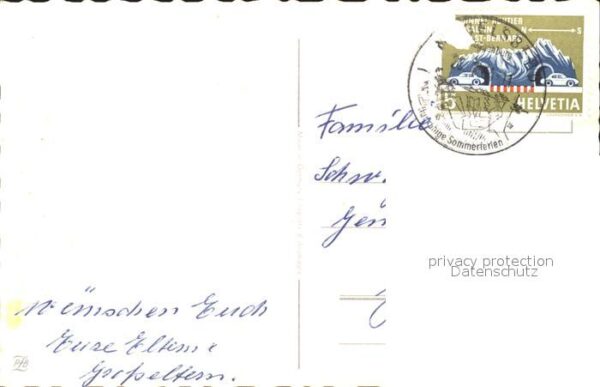 TUNNEL ROUTIER
ALPIN N S
ST-BERNARD
5 HELVETIA
Sommerferien
Familie
Schw.
privacy protection
Datenschutz
wünschen Euch
Eure Eltern
Großeltern.